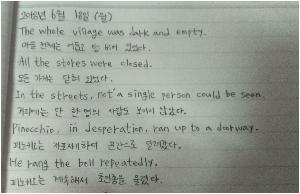 2018년 6월 18일 (월)
The whole village was dark and empty.
마을 전체는 어둡고 텅 비어 있었다.
All the stores were closed.
모든 가게는 닫혀 있었다.
In the streets, not a single person could be seen.
거리에는 단 한명의 사람도 보이지 않았다.
Pinocchio, in desperation, ran up to a doorway.
피노키오는 자포자기하여 문간으로 달려갔다.
He rang the bell repeatedly.
피노키오는 계속해서 초인종을 울렸다.